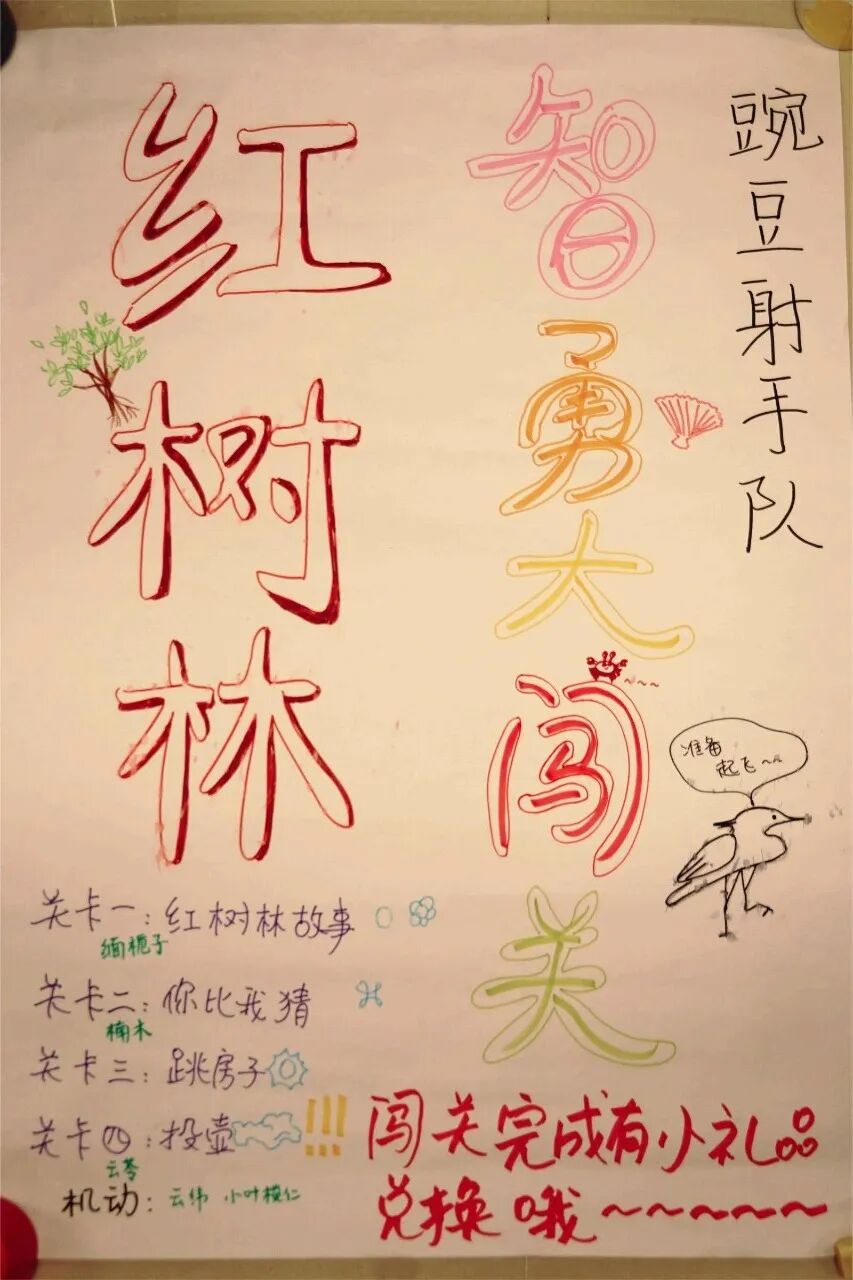 豌豆射手队
智勇大闯关
红树林
准备
起飞~~
关卡一：红树林故事
缅栀子
关卡二：你比我猜
楠木
关卡三：跳房子
关卡四：投壶!!!
云苓
机动：云纬 小叶榄仁
闯关完成有小礼品
兑换哦~~~~~~